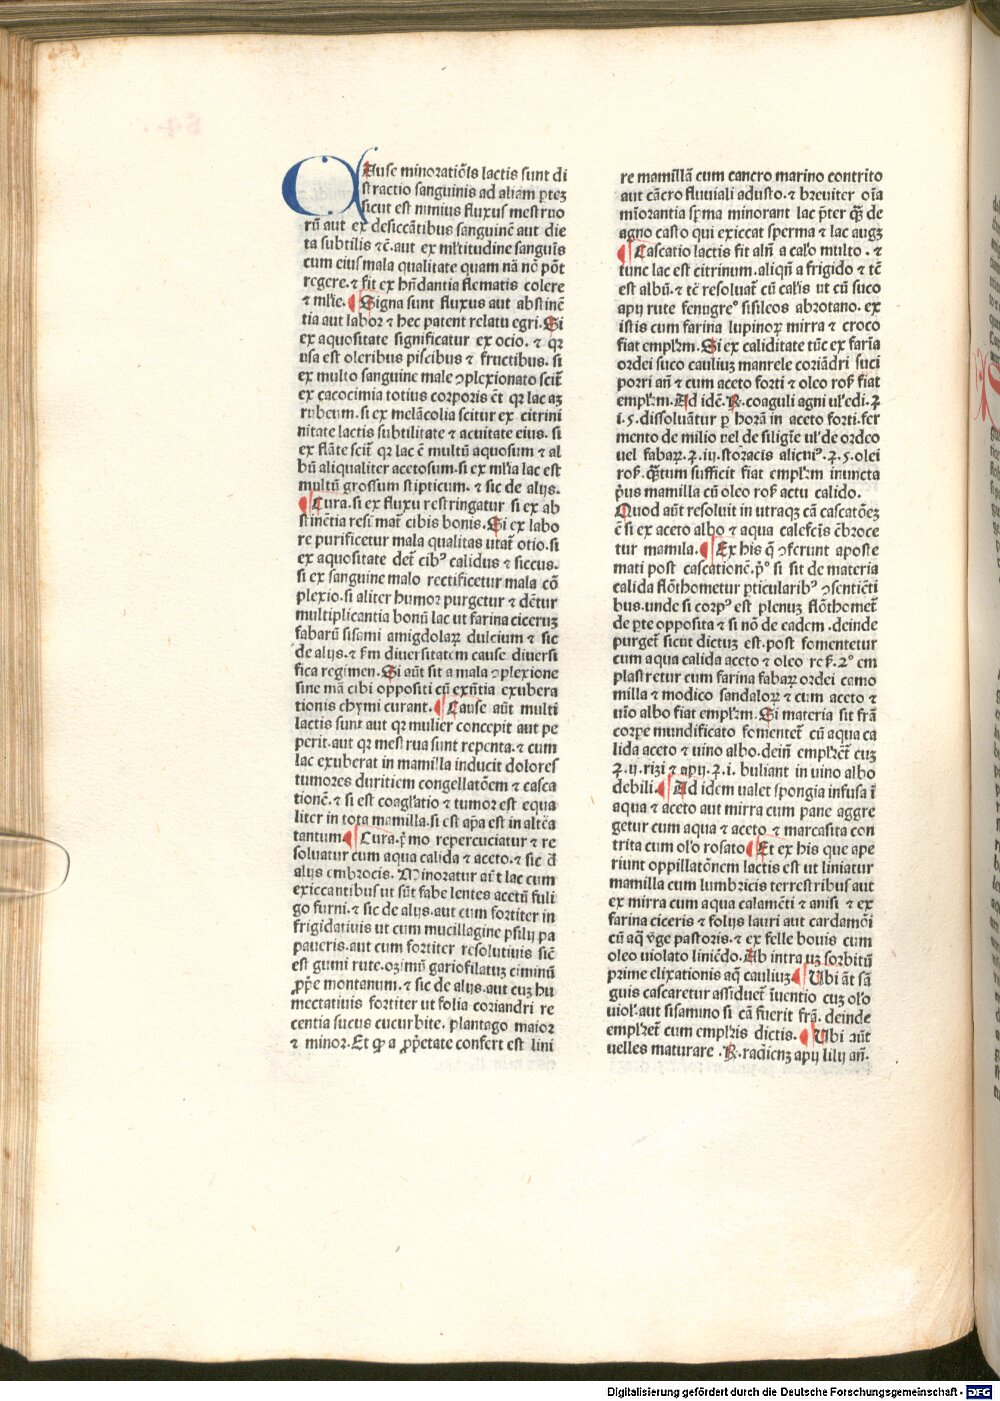 CAuse minoratiōis lactis sunt di
stractio sanguinis ad aliam ptez
sicut est nimius fluxus mestruo
rū aut ex desiccātibus sanguinē aut die
ta subtilis ⁊c̄.aut ex ml̄titudine sanguīs
cum eius mala qualitate quam nā nō pōt
regere.⁊ fit ex hn̄dantia flematis colere
⁊ ml̄ie. Signa sunt fluxus aut abstinē
tia aut labor ⁊ hec patent relatu egri.Si
ex aquositate significatur ex ocio. ⁊ qꝛ
usa est oleribus piscibus ⁊ fructibus. si
ex multo sanguine male ɔplexionato scit̄
ex cacocimia totius corporis ēt qꝛ lac aꝫ
rubeum.si ex melācolia scitur ex citrini
nitate lactis subtilitate ⁊ acuitate eius. si
ex flāte scit̄ qꝛ lac ē multū aquosum ⁊ al
bū aliqualiter acetosum.si ex ml̄ia lac est
multū grossum stipticum. ⁊ sic de alijs.
Cura.si ex fluxu restringatur si ex ab
stinētia resī mat̄ cibis bonis.Si ex labo
re purificetur mala qualitas utat̄ otio.si
ex aquositate det̄ cibꝰ calidus ⁊ siccus.
si ex sanguine malo rectificetur mala cō
plexio.si aliter humor purgetur ⁊ dētur
multiplicantia bonū lac ut farina ciceruꝫ
fabarū sisami amigdolaꝝ dulcium ⁊ sic
de alijs.⁊ ẜm diuersitatem cause diuersi
fica regimen.Si aūt sit a mala ɔplexione
sine mā cibi oppositi cū exn̄tia exubera
tionis chymi curant. Cause aūt multi
lactis sunt aut qꝛ mulier concepit aut pe
perit.aut qꝛ mestrua sunt repenta.⁊ cum
lac exuberat in mamilla inducit dolores
tumores duritiem congellatōem ⁊ casca
tionē.⁊ si est coagl̄atio ⁊ tumor est equa
liter in tota mamilla.si est ap̄a est in altēa
tantum. Cura.p̄mo repercuciatur ⁊ re
soluatur cum aqua calida ⁊ aceto.⁊ sic d̄
alijs embrocis. Minoratur aūt lac cum
exiccantibus ut sūt fabe lentes acetū fuli
go furni.⁊ sic de alijs.aut cum fortiter in
frigidatiuis ut cum mucillagine psilij pa
paueris.aut cum fortiter resolutiuis sic̄
est gumi rute.ozimū gariofilatuꝫ ciminū
ꝓpe montanum.⁊ sic de alijs.aut cuꝫ hu
mectatiuis fortiter ut folia coriandri re
centia sucus cucurbite. plantago maior
⁊ minor.Et qꝫ a ꝓpetate confert est lini
re mamillā cum cancro marino contrito
aut cācro fluuiali adusto.⁊ breuiter oīa
mīorantia sp̄ma minorant lac p̄ter qꝫ de
agno casto qui exiccat sperma ⁊ lac augꝫ
Cascatio lactis fit aln̄ a cal̄o multo . ⁊
tunc lac est citrinum.aliqn̄ a frigido ⁊ tē
est albū.⁊ tē resoluat̄ cū cal̄is ut cū suco
apij rute fenugreº sisileos abrotano. ex
istis cum farina lupinoꝝ mirra ⁊ croco
fiat empl̄ꝝm.Si ex caliditate tūc ex farīa
ordei suco cauliuꝫ manrele coriādri suci
porri an̄ ⁊ cum aceto forti ⁊ oleo ros̄ fiat
empl̄ꝝm.Ad idē.℞.coaguli agni ul̄edi.ʒ
i.5.dissoluātur ꝑ horā in aceto forti.fer
mento de milio uel de siligīe ul̄de ordeo
uel fabaꝝ.ʒ.iij.stōracis alicniꝰ.ʒ.5.olei
ros̄. qꝫtum sufficit fiat empl̄ꝝm inuncta
p̄us mamilla cū oleo ros̄ actu calido.
Quod aūt resoluit in utraqꝫ cā cascatōeꝫ
ē si ex aceto albo ⁊ aqua calefcīs ēbroce
tur mamila. Ex his q̄ ɔferunt aposte
mati post cascationē.p̄º si sit de materia
calida flōthometur pticularibꝰ ɔsentiēti
bus.unde si corpꝰ est plenuꝫ flōthomet̄
de pte opposita ⁊ si nō de eadem .deinde
purget̄ sicut dictuꝫ est.post fomentetur
cum aqua calida aceto ⁊ oleo ros̄.2º em
plastretur cum farina fabaꝝ ordei camo
milla ⁊ modico sandaloꝝ ⁊ cum aceto ⁊
uīo albo fiat empl̄ꝝm.Si materia sit frā
corpe mundificato fomentet̄ cū aqua ca
lida aceto ⁊ uino albo.dein̄ empl̄ꝝet̄ cuꝫ
ʒ.ij.rizi ⁊ apij.ʒ.i. buliant in uino albo
debili. Ad idem ualet spongia infusa ī
aqua ⁊ aceto aut mirra cum pane aggre
getur cum aqua ⁊ aceto ⁊ marcasita con
trita cum ol̄o rosato Et ex his que ape
riunt oppillatōnem lactis est ut liniatur
mamilla cum lumbricis terrestribus aut
ex mirra cum aqua calamēti ⁊ anisi ⁊ ex
farina ciceris ⁊ folijs lauri aut cardamōi
cū aq̄ v̄ge pastoris.⁊ ex felle bouis cum
oleo uiolato liniēdo.Ab intra uꝫ sorbitū
prime elixationis aq̄ cauliuꝫ Ubi āt sā
guis cascaretur assiduet̄ īuentio cuꝫ ol̄o
uiol̄.aut sisamino si cā fuerit frā. deinde
empl̄ꝝet̄ cum empl̄ꝝis dictis. Ubi aūt
uelles maturare .℞.radicuꝫ apij lilij an̄.
Digitalisierung gefördert durch die Deutsche Forschungsgemeinschaft - DFG